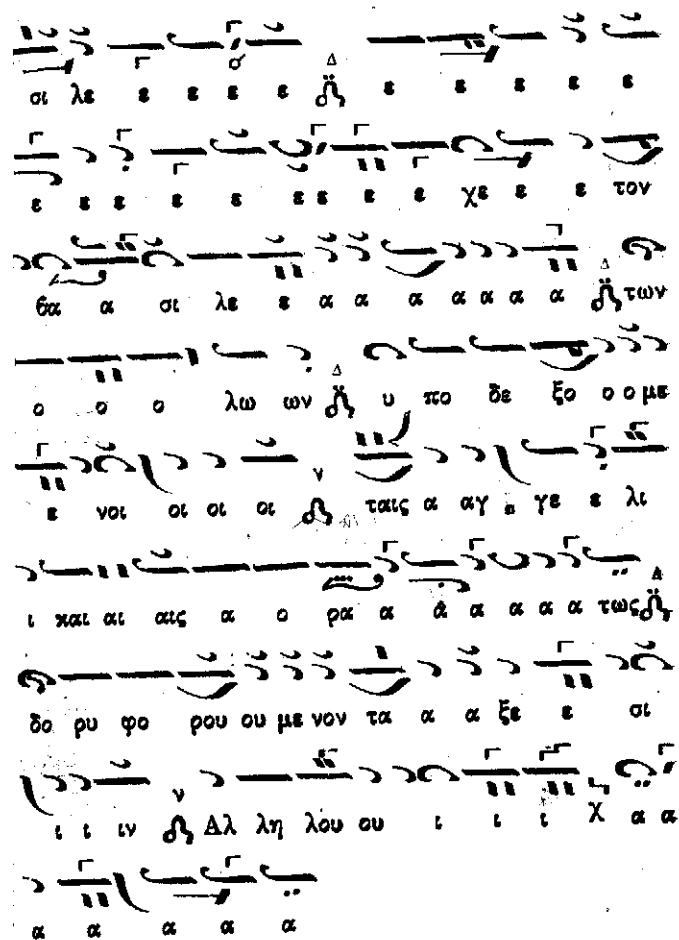 σι λε ε ε ε ε Δ ε ε ε ε ε ε
ε ε ε ε ε ε ε ε ε χε ε ε τον
βα α σι λε ε α α α α α α α Δ των
ο ο ο λω ων Δ υ πο δε ξο ο ο με
ε νοι οι οι οι ν ταις α αγ γε ε λι
ι και αι αις α ο ρα α α α α α α τως Δ
δο ρυ φο ρου ου με νον τα α α ξε ε σι
ι ι ιν ν Αλ λη λου ου ι ι ι χ α α
α α α α α